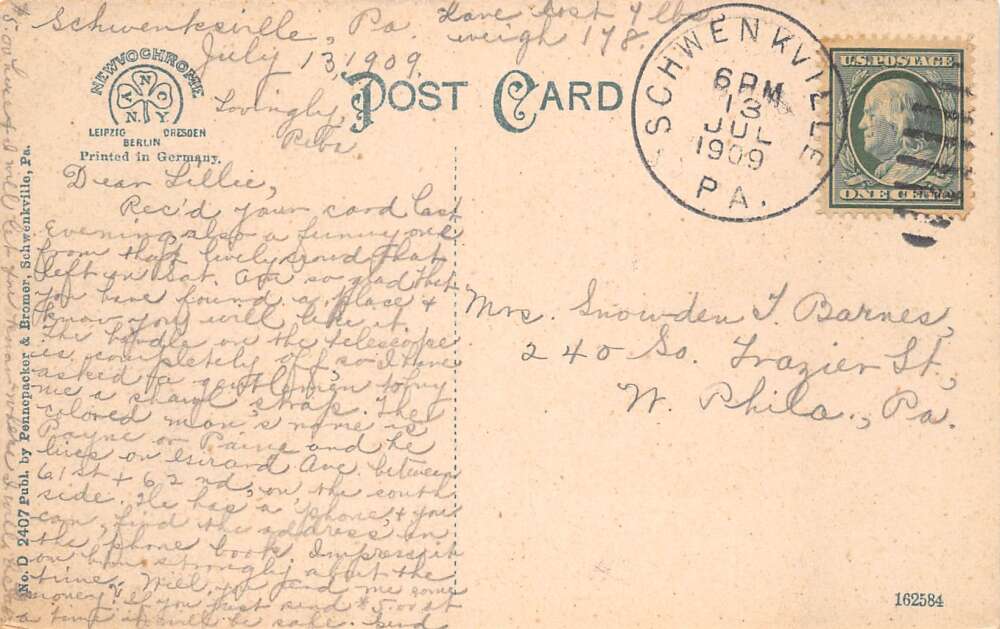 Schwenksville, Pa.
July 13, 1909.
Have lost 4 lbs
weigh 178.
Lovingly,
NEWVOCHROME
LEIPZIG DRESDEN
BERLIN
Printed in Germany.
POST CARD
SCHWENKVILLE
6 PM
13
JUL
1909
PA.
U.S. POSTAGE
ONE CENT
Dear Lillie,
Rec'd your card last
Evening, also a funny one
from that lively crowd that
left on Sat. Am so glad that
you have found a place +
know you will like it.
The handle on the telescope
is completely off, so I have
asked a gentleman to buy
me a shawl strap. The
colored man's name is
Payne or Paine and he
lives on Girard Ave. between
61st + 62nd, on the south
side. He has a 'phone, + you
can find the address in
the phone book. Impress it
on him strongly about the
time. Will you send me some
money? If you just send $5.00 at
a time it will be safe. Send
$5.00 when
Mrs. Snowden T. Barnes,
240 So. Frazier St.,
W. Phila., Pa.
No. D 2407 Publ. by Pennepacker & Bromer, Schwenkville, Pa.
162584